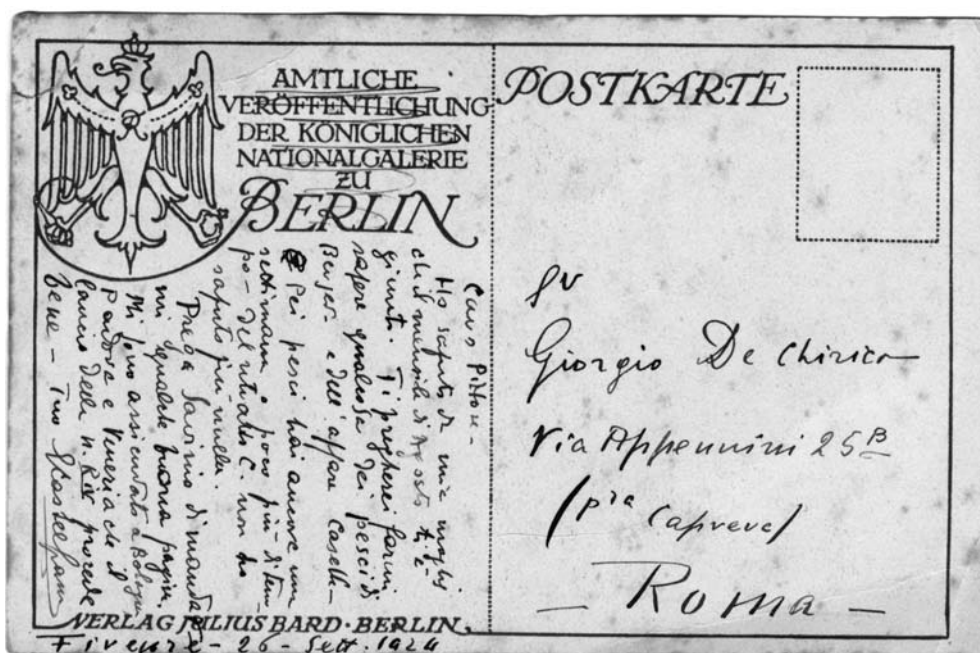 AMTLICHE
VERÖFFENTLICHUNG
DER KÖNIGLICHEN
NATIONALGALERIE
ZU
BERLIN
Caro Pittore –
Ho saputo da mia moglie
che il mensile di Agosto ti è
giunto. Ti pregherei farmi
sapere qualcosa dei pesci di
e dell'affare Casella
Pei pesci hai ancora una
settimana o poco più di tem-
po – Del ritratto C. non ho
saputo più nulla.
Prega Savinio di mandar-
mi qualche buona pagina.
Mi sono assicurato a Bologna
Padova e Venezia che il
lancio della n. Riv. procede
bene – Tuo
VERLAG JULIUS BARD · BERLIN
Firenze – 26 – Sett. 1924
POSTKARTE
Giorgio De Chirico
Via Appennini 25B
(pza Caprera)
– Roma –